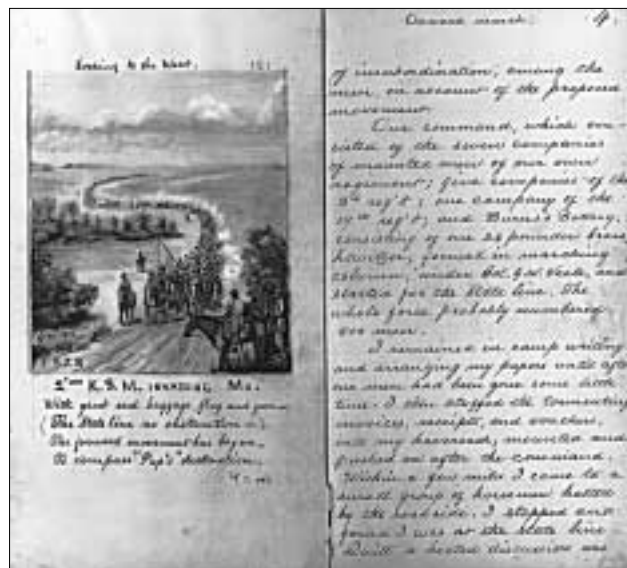 to the West.
2nd K. S. M. invading Mo.
With and baggage, flag and
(The State line no obstruction is)
The forward movement has begun,
To compass "Pap's" destruction.
Onward march. 4.
of insubordination, among the
men, on account of the proposed
movement.
Our command, which con-
sisted of the seven companies
of mounted men of our own
regiment; five companies of the
reg't; one company of the
reg't; and Burns's Battery,
consisting of one 24 pounder brass
howitzer, formed in marching
column, under Col. G. W. Veale, and
started for the State line. The
whole force probably numbered
men.
I remained in camp writing
and arranging my papers until after
our men had been gone some little
time. I then the tormenting
invoices, receipts, and vouchers
into my haversack, mounted and
pushed on after the command.
Within a few miles I came to a
small group of horsemen halted
by the roadside. I stopped and
found I was at the State line
a heated discussion was